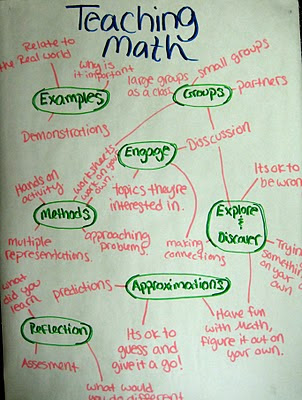 Teaching
Math
Relate to
the Real world
Why is
it important
large groups
as a class
small groups
partners
Examples
Groups
Demonstrations
Worksheets
work on your
own.
Engage
Disscussion
Hands on
activity
topics theyre
interested in.
Its ok to
be wron
Methods
Explore
&
Discover
approaching
problems.
Multiple
representations
making
connections
Trying
something
on your
own
what
did you
learn
predictions
Approximations
Reflection
Its ok to
guess and
give it a go!
Have fun
with Math,
figure it out on
your own.
Assesment
what would
you do different